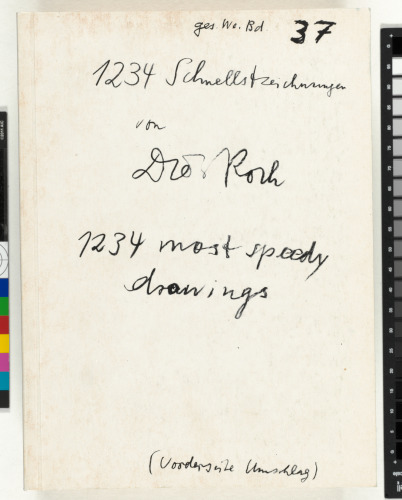 ges. We. Bd 37
1234 Schnellstzeichnungen
von
Roth
1234 most speedy
drawings
(Vorderseite Umschlag)